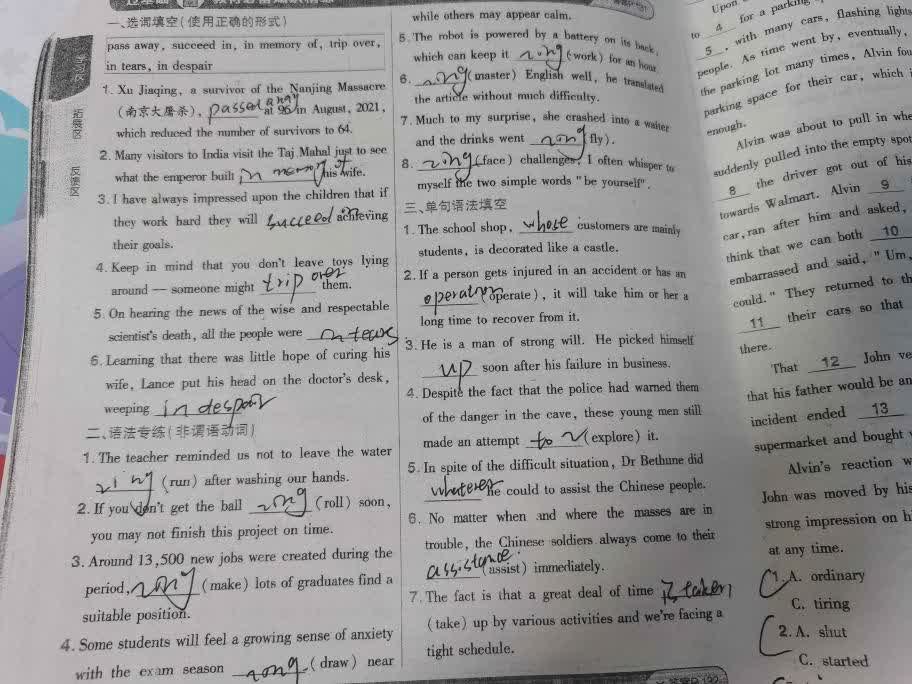 一、选词填空(使用正确的形式)
pass away, succeed in, in memory of, trip over,
in tears, in despair
1. Xu Jiaqing, a survivor of the Nanjing Massacre
(南京大屠杀), passed away at 96 in August, 2021,
which reduced the number of survivors to 64.
2. Many visitors to India visit the Taj Mahal just to see
what the emperor built in memory of his wife.
3. I have always impressed upon the children that if
they work hard they will succeed in achieving
their goals.
4. Keep in mind that you don't leave toys lying
around — someone might trip over them.
5. On hearing the news of the wise and respectable
scientist's death, all the people were in tears
6. Learning that there was little hope of curing his
wife, Lance put his head on the doctor's desk,
weeping in despair
二、语法专练(非谓语动词)
1. The teacher reminded us not to leave the water
ing (run) after washing our hands.
2. If you don't get the ball ing (roll) soon,
you may not finish this project on time.
3. Around 13,500 new jobs were created during the
period, ing (make) lots of graduates find a
suitable position.
4. Some students will feel a growing sense of anxiety
with the exam season ing (draw) near
while others may appear calm.
5. The robot is powered by a battery on its back,
which can keep it ing (work) for an hour.
6. ing (master) English well, he translated
the article without much difficulty.
7. Much to my surprise, she crashed into a waiter
and the drinks went ing (fly).
8. ing (face) challenges, I often whisper to
myself the two simple words "be yourself".
三、单句语法填空
1. The school shop, whose customers are mainly
students, is decorated like a castle.
2. If a person gets injured in an accident or has an
operation (operate), it will take him or her a
long time to recover from it.
3. He is a man of strong will. He picked himself
up soon after his failure in business.
4. Despite the fact that the police had warned them
of the danger in the cave, these young men still
made an attempt to v (explore) it.
5. In spite of the difficult situation, Dr Bethune did
whatever he could to assist the Chinese people.
6. No matter when and where the masses are in
trouble, the Chinese soldiers always come to their
assistance (assist) immediately.
7. The fact is that a great deal of time is taken
(take) up by various activities and we're facing a
tight schedule.
Upon
to 4 for a parking
5, with many cars, flashing lights
people. As time went by, eventually,
the parking lot many times, Alvin fou
parking space for their car, which i
enough.
Alvin was about to pull in whe
suddenly pulled into the empty spot
8 the driver got out of his
towards Walmart. Alvin 9
car, ran after him and asked,
think that we can both 10
embarrassed and said, "Um,
could." They returned to th
11 their cars so that
there.
That 12 John ve
that his father would be an
incident ended 13
supermarket and bought
Alvin's reaction w
John was moved by his
strong impression on h
at any time.
1. A. ordinary
C. tiring
2. A. shut
C. started
拓展区
反馈区